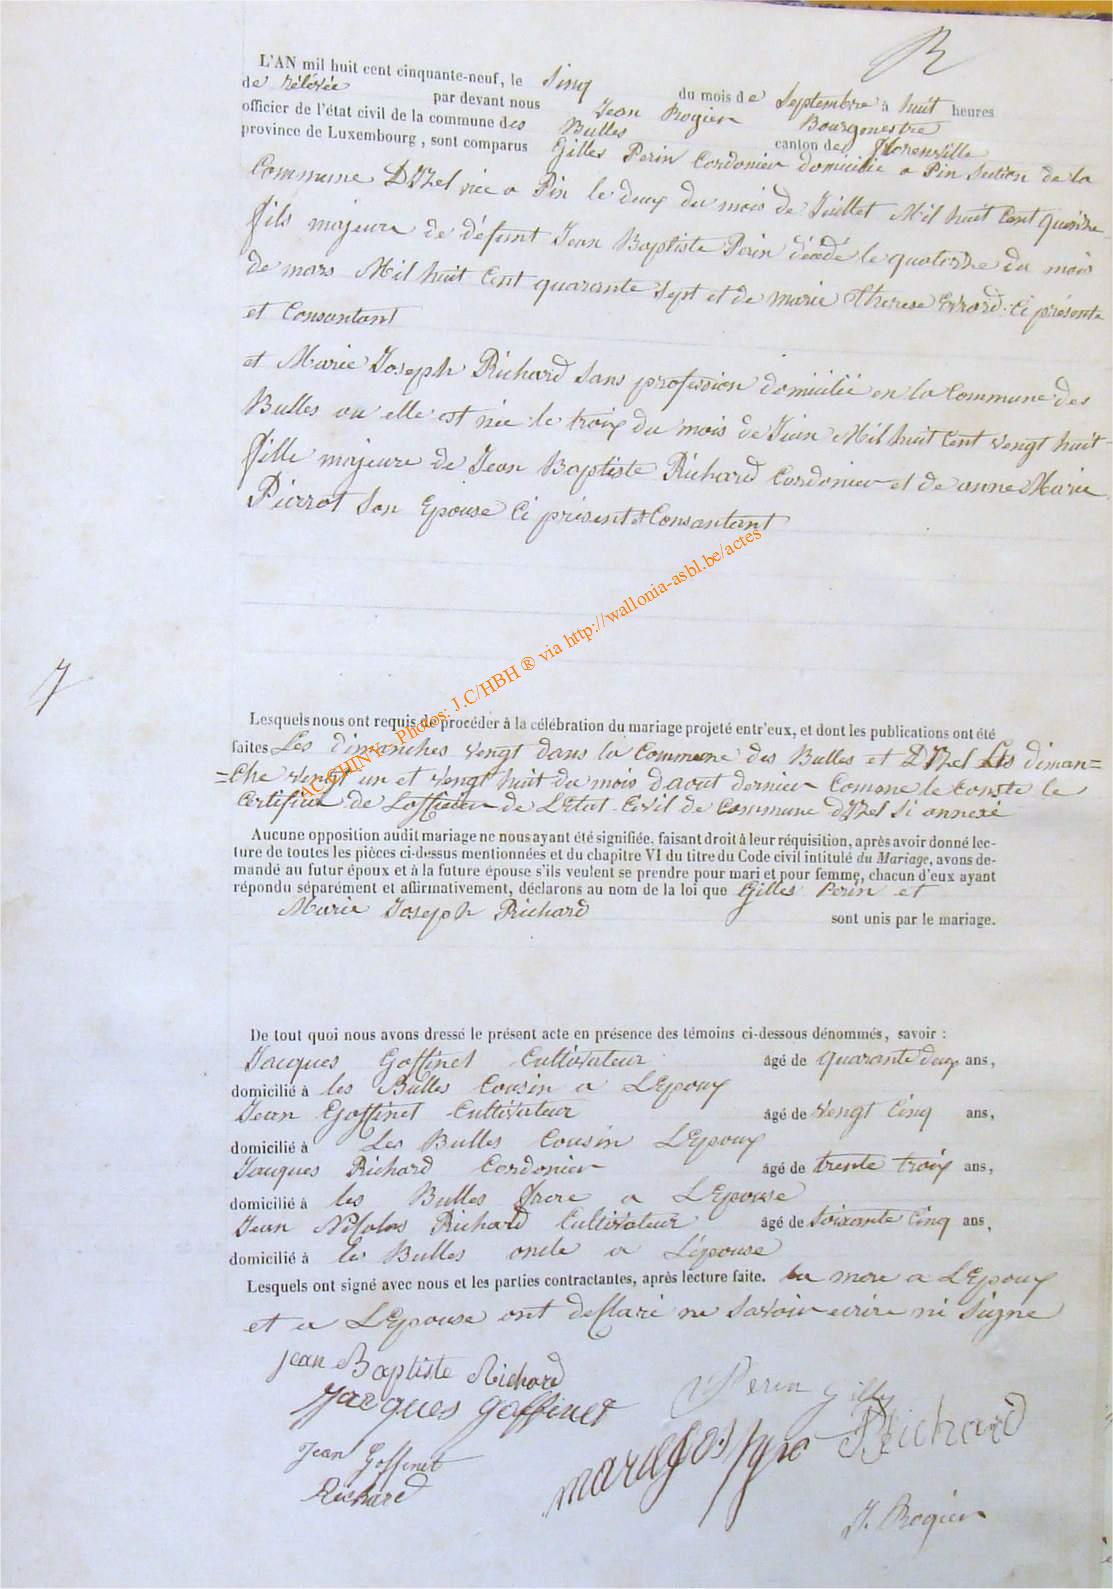 R
L'AN mil huit cent cinquante-neuf, le sinq du mois de Septembre à huit heures
de rélévée par devant nous Jean Rogier Bourgmestre
officier de l'état civil de la commune des Bulles canton de Florenville
province de Luxembourg, sont comparus Gilles Perin Cordonier domicilié a Pin Section de la
Commune DIzel née a Pin le deux du mois de Juillet Mil huit Cent
fils majeur de défunt Jean Baptiste Perin décédé le quatorze du mois
de mars Mil huit Cent quarante sept et de marie Therese Errard Ci présente
et Consantant
et Marie Joseph Richard Sans profession domicilié en la Commune des
Bulles ou elle est née le troix du mois de Juin Mil huit Cent vengt huit
fille majeure de Jean Baptiste Richard Cordonier et de anne Marie
Pierrot Son Epouse Ci présent et Consantant
7
ACGHINY - Photos: J.C/HBH ® via http://wallonia-asbl.be/actes
Lesquels nous ont requis de procéder à la célébration du mariage projeté entr'eux, et dont les publications ont été
faites Les dimanches vengt dans la Commune des Bulles et DIzel Les diman=
=che vengt un et vengt huit du mois daout dernier Comme le Conste le
Certificat de Lofficier de LEtat-Civil de Commune dIzel Si annexé
Aucune opposition audit mariage ne nous ayant été signifiée, faisant droit à leur réquisition, après avoir donné lec-
ture de toutes les pièces ci-dessus mentionnées et du chapitre VI du titre du Code civil intitulé du Mariage, avons de-
mandé au futur époux et à la future épouse s'ils veulent se prendre pour mari et pour femme, chacun d'eux ayant
répondu séparément et affirmativement, déclarons au nom de la loi que Gilles Perin et
Marie Joseph Richard sont unis par le mariage.
De tout quoi nous avons dressé le présent acte en présence des témoins ci-dessous dénommés, savoir :
Jacques Goffinet Cultivateur âgé de quarante deux ans,
domicilié à les Bulles Cousin a LEpoux
Jean Goffinet Cultivateur âgé de vengt Cinq ans,
domicilié à Les Bulles Cousin LEpoux
Jacques Richard Cordonier âgé de trente troix ans,
domicilié à les Bulles frere a LEpouse
Jean Nicolas Richard Cultivateur âgé de soixante Cinq ans,
domicilié à les Bulles oncle a Lépouse
Lesquels ont signé avec nous et les parties contractantes, après lecture faite. La mere a LEpoux
et a LEpouse ont déclaré ne Savoir ecrire ni Signe
jean Baptiste Richard
Perin Gille
jacques goffinet
Richard
Jean Goffinet
Richard
J. Rogier